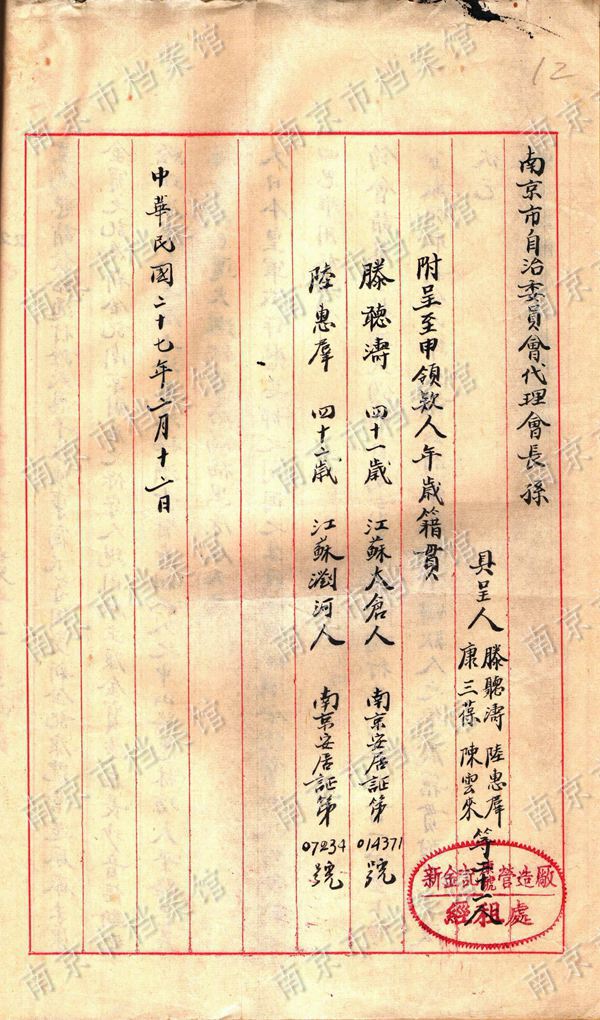 12
南京市自治委員會代理會長孫
具呈人 滕聽濤 陸惠羣
康三葆 陳雲來 等二十一人
附呈至申領款人年歲籍貫
滕聽濤 四十一歲 江蘇太倉人 南京安居証第014371號
陸惠羣 四十二歲 江蘇瀏河人 南京安居証第07234號
中華民國二十七年二月十六日
新金記營造廠
經租處
南京市档案馆